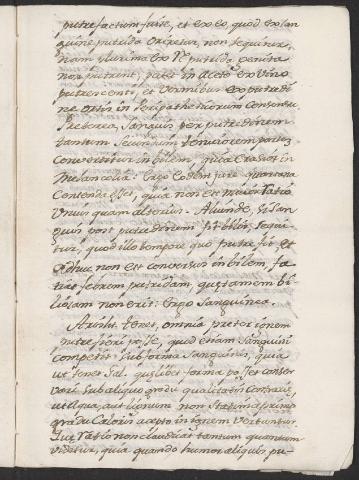 putrefactum fuisse, et ex eo, quod ex san
guine putrido oriretur, non sequitur,
nam plurima ex putridis genita
non putrent, patet in Aceto ex Vino
putrescenti, et Vermibus ex putridi
ne ortis in Peripatheticorum consensu
Preterea, Sanguis per putredinem
tantum secundum tenuiorem partem
convertitur in bilem, quia crassior in
Melancolia: Ergo eodem jure quartana
Contenda esset, quia non est maior ratio
Unius quam alterius. Aliunde, si San
guis post putredinem fit bilis, sequi
tur, quod illo tempore quo putrefit, et
adhuc non est conversus in bilem, fa
ciat febrem putridam, quae tamen bi
liosam non erit: Ergo Sanguinea.
tenet, omnia preter ignem
putrefieri posse, quod etiam Sanguini
competit sub forma Sanguinis, quia
ut tenet quaelibet forma potest conser
vari sub aliquo gradu qualitatis contrariae,
ut Aqua, aut lignum non statim primo
gradu Caloris accepto in ignem vertuntur.
ratio non claudicat tantum quantum
videtur, quia quando humor aliquis pu-